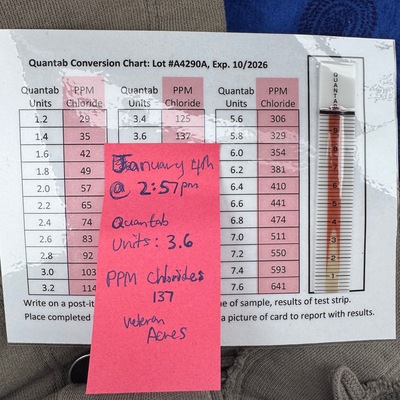 Quantab Conversion Chart: Lot #A4290A, Exp. 10/2026
Quantab Units PPM Chloride Quantab Units PPM Chloride Quantab Units PPM Chloride
1.2 29 3.4 125 5.6 306
1.4 35 3.6 137 5.8 329
1.6 42 6.0 354
1.8 49 6.2 381
2.0 57 6.4 410
2.2 65 6.6 441
2.4 74 6.8 474
2.6 83 7.0 511
2.8 92 7.2 550
3.0 103 7.4 593
3.2 114 7.6 641
Write on a post-it
e of sample, results of test strip.
Place completed
a picture of card to report with results.
January 4th
@ 2:57pm
Quantab
Units: 3.6
PPM Chlorides
137
Veteran
Acres
QUANTAB
9
8
7
6
5
4
3
2
1